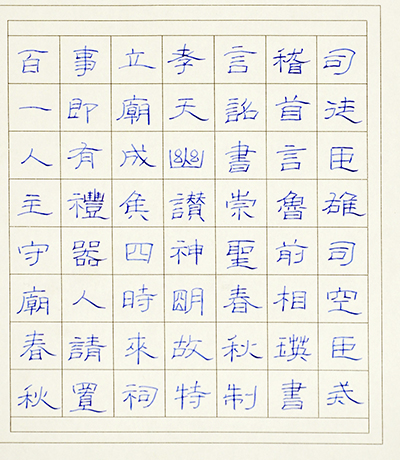 司徒臣雄司空臣戒
稽首言魯前相瑛書
言詔書崇聖春秋制
孝天幽讃神朙故特
立廟成矦四時來祠
事即有禮器人請置
百一人主守廟春秋